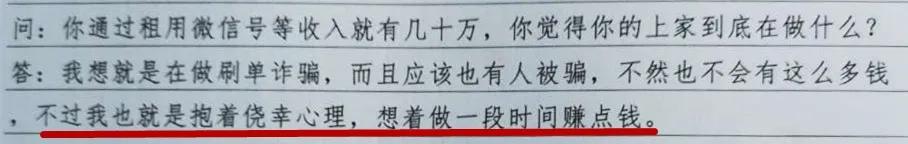 问：你通过租用微信号等收入就有几十万，你觉得你的上家到底在做什么？
答：我想就是在做刷单诈骗，而且应该也有人被骗，不然也不会有这么多钱
，不过我也就是抱着侥幸心理，想着做一段时间赚点钱。